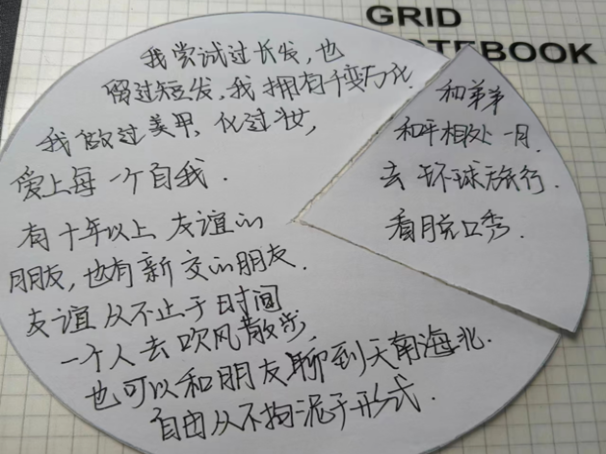 GRID
NOTEBOOK
我尝试过长发，也
留过短发，我拥有千变万化.
我做过美甲、化过妆，
爱上每一个自我.
有十年以上 友谊的
朋友，也有新交的朋友.
友谊从不止于时间
一个人去吹风散步，
也可以和朋友聊到天南海北.
自由从不拘泥于形式.
和弟弟
和平相处一月.
去环球旅行.
看脱口秀.